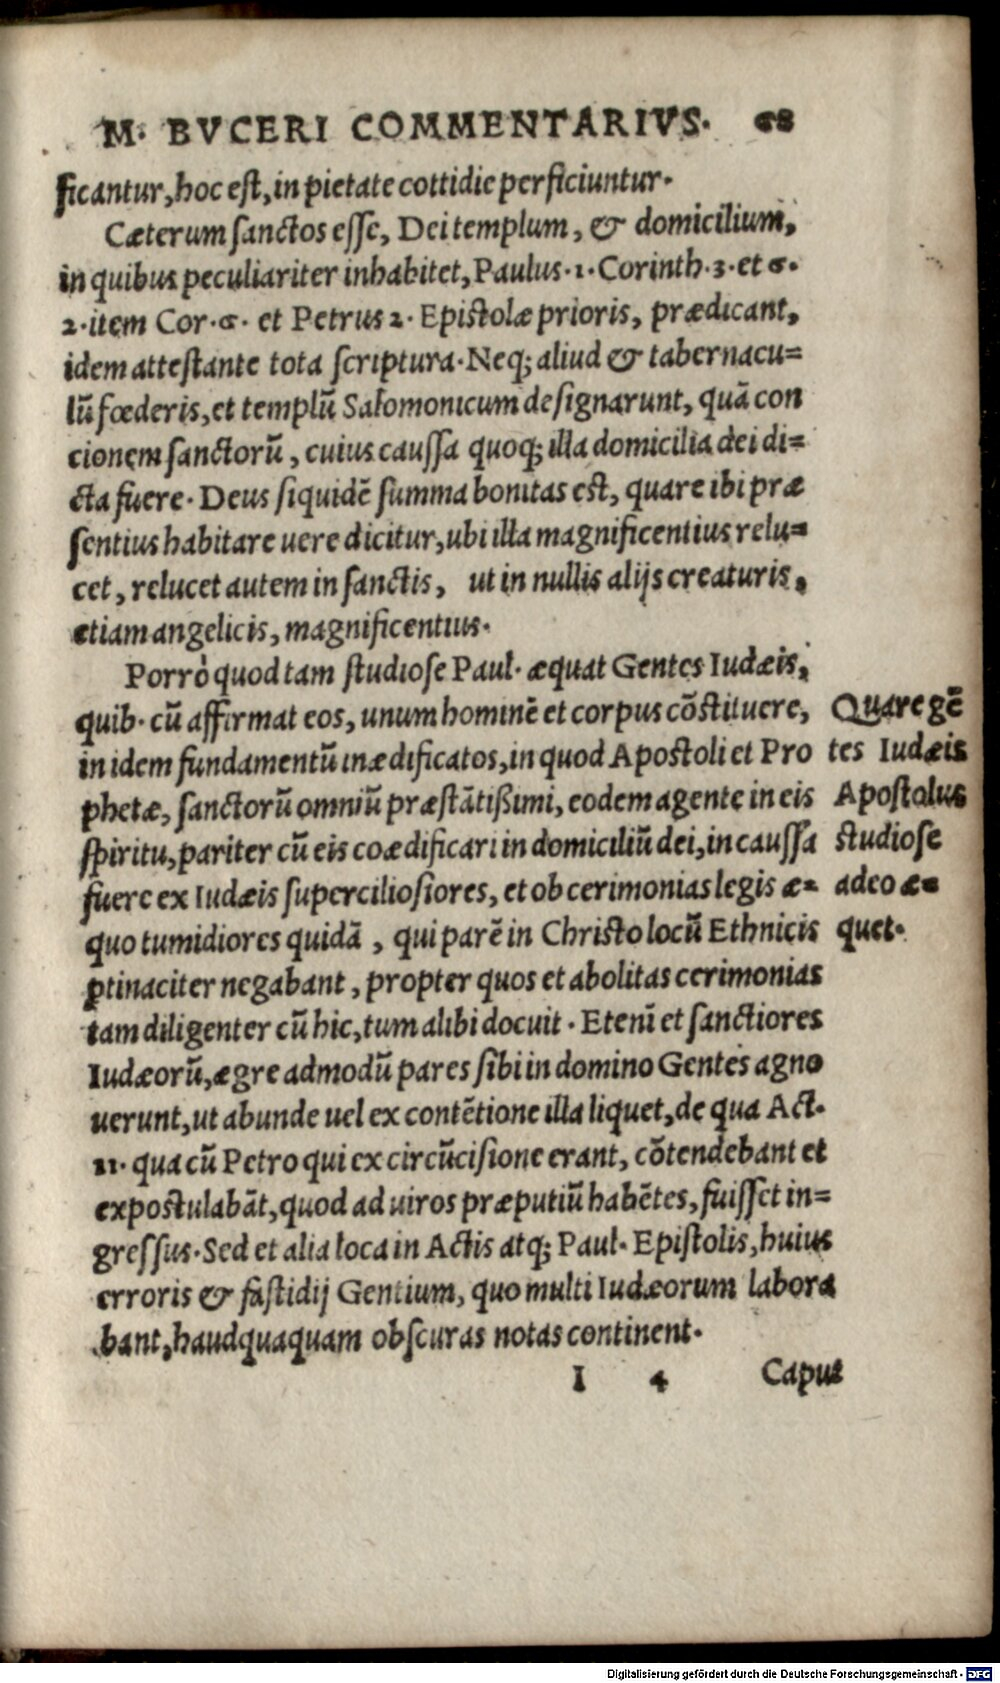 M. BVCERI COMMENTARIVS. 68
ficantur, hoc est, in pietate cottidie perficiuntur.
Cæterum sanctos esse, Dei templum, & domicilium,
in quibus peculiariter inhabitet, Paulus .1. Corinth. 3. et 6.
2. item Cor. 6. et Petrus 2. Epistolæ prioris, prædicant,
idem attestante tota scriptura. Neq; aliud & tabernacu=
lū fœderis, et templū Salomonicum designarunt, quā con
cionem sanctorū, cuius caussa quoq; illa domicilia dei di=
cta fuere. Deus siquidē summa bonitas est, quare ibi præ
sentius habitare uere dicitur, ubi illa magnificentius relu=
cet, relucet autem in sanctis, ut in nullis alijs creaturis,
etiam angelicis, magnificentius.
Porrò quod tam studiose Paul. æquat Gentes Iudæis,
quib. cū affirmat eos, unum hominē et corpus cōstituere,
in idem fundamentū inædificatos, in quod Apostoli et Pro
phetæ, sanctorū omniū præstātißimi, eodem agente in eis
spiritu, pariter cū eis coædificari in domiciliū dei, in caussa
fuere ex Iudæis superciliosiores, et ob cerimonias legis æ=
quo tumidiores quidā, qui parē in Christo locū Ethnicis
ꝑtinaciter negabant, propter quos et abolitas cerimonias
tam diligenter cū hic, tum alibi docuit. Etenī et sanctiores
Iudæorū, ægre admodū pares sibi in domino Gentes agno
uerunt, ut abunde uel ex contētione illa liquet, de qua Act.
11. qua cū Petro qui ex circūcisione erant, cōtendebant et
expostulabāt, quod ad uiros præputiū habētes, fuisset in=
gressus. Sed et alia loca in Actis atq; Paul. Epistolis, huius
erroris & fastidij Gentium, quo multi Iudæorum labora
bant, haudquaquam obscuras notas continent.
I 4 Caput
Quare gē
tes Iudæis
Apostolus
studiose
adeo æ=
quet.
Digitalisierung gefördert durch die Deutsche Forschungsgemeinschaft - DFG